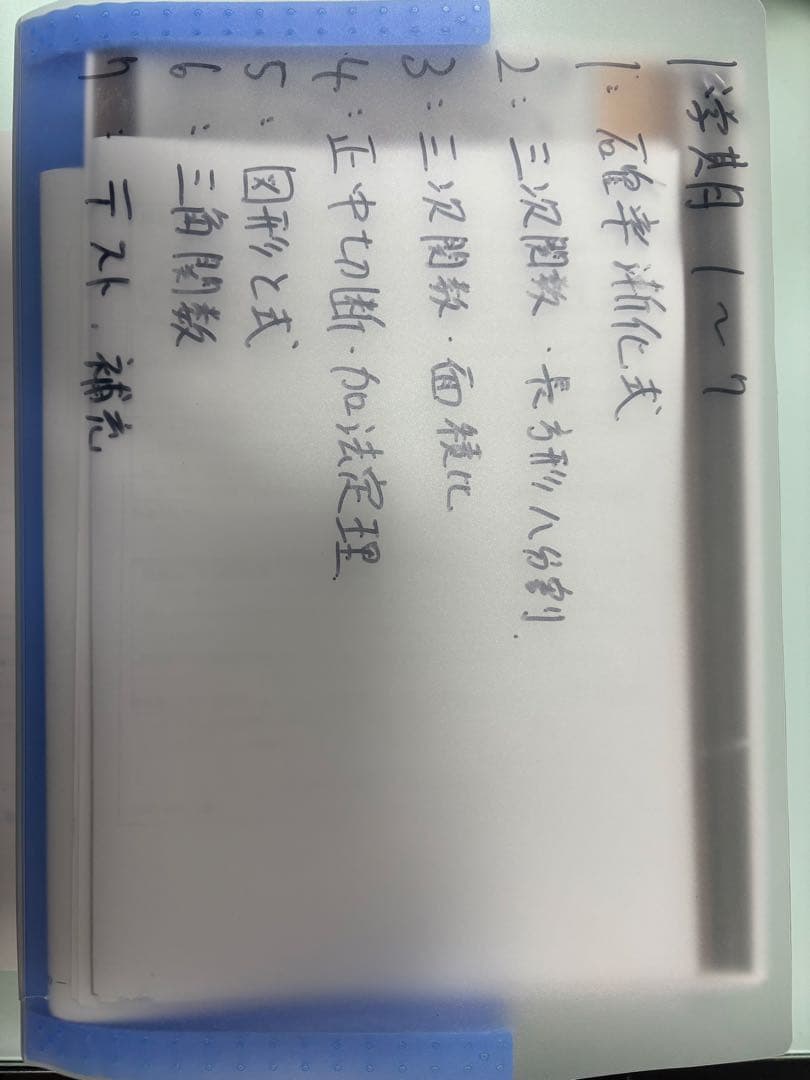 1学期 1〜7
1:確率漸化式
2:三次関数・長方形八分割.
3:三次関数・面積比
4:正中切断・加法定理
5:図形と式
6:三角関数
7:テスト.補充